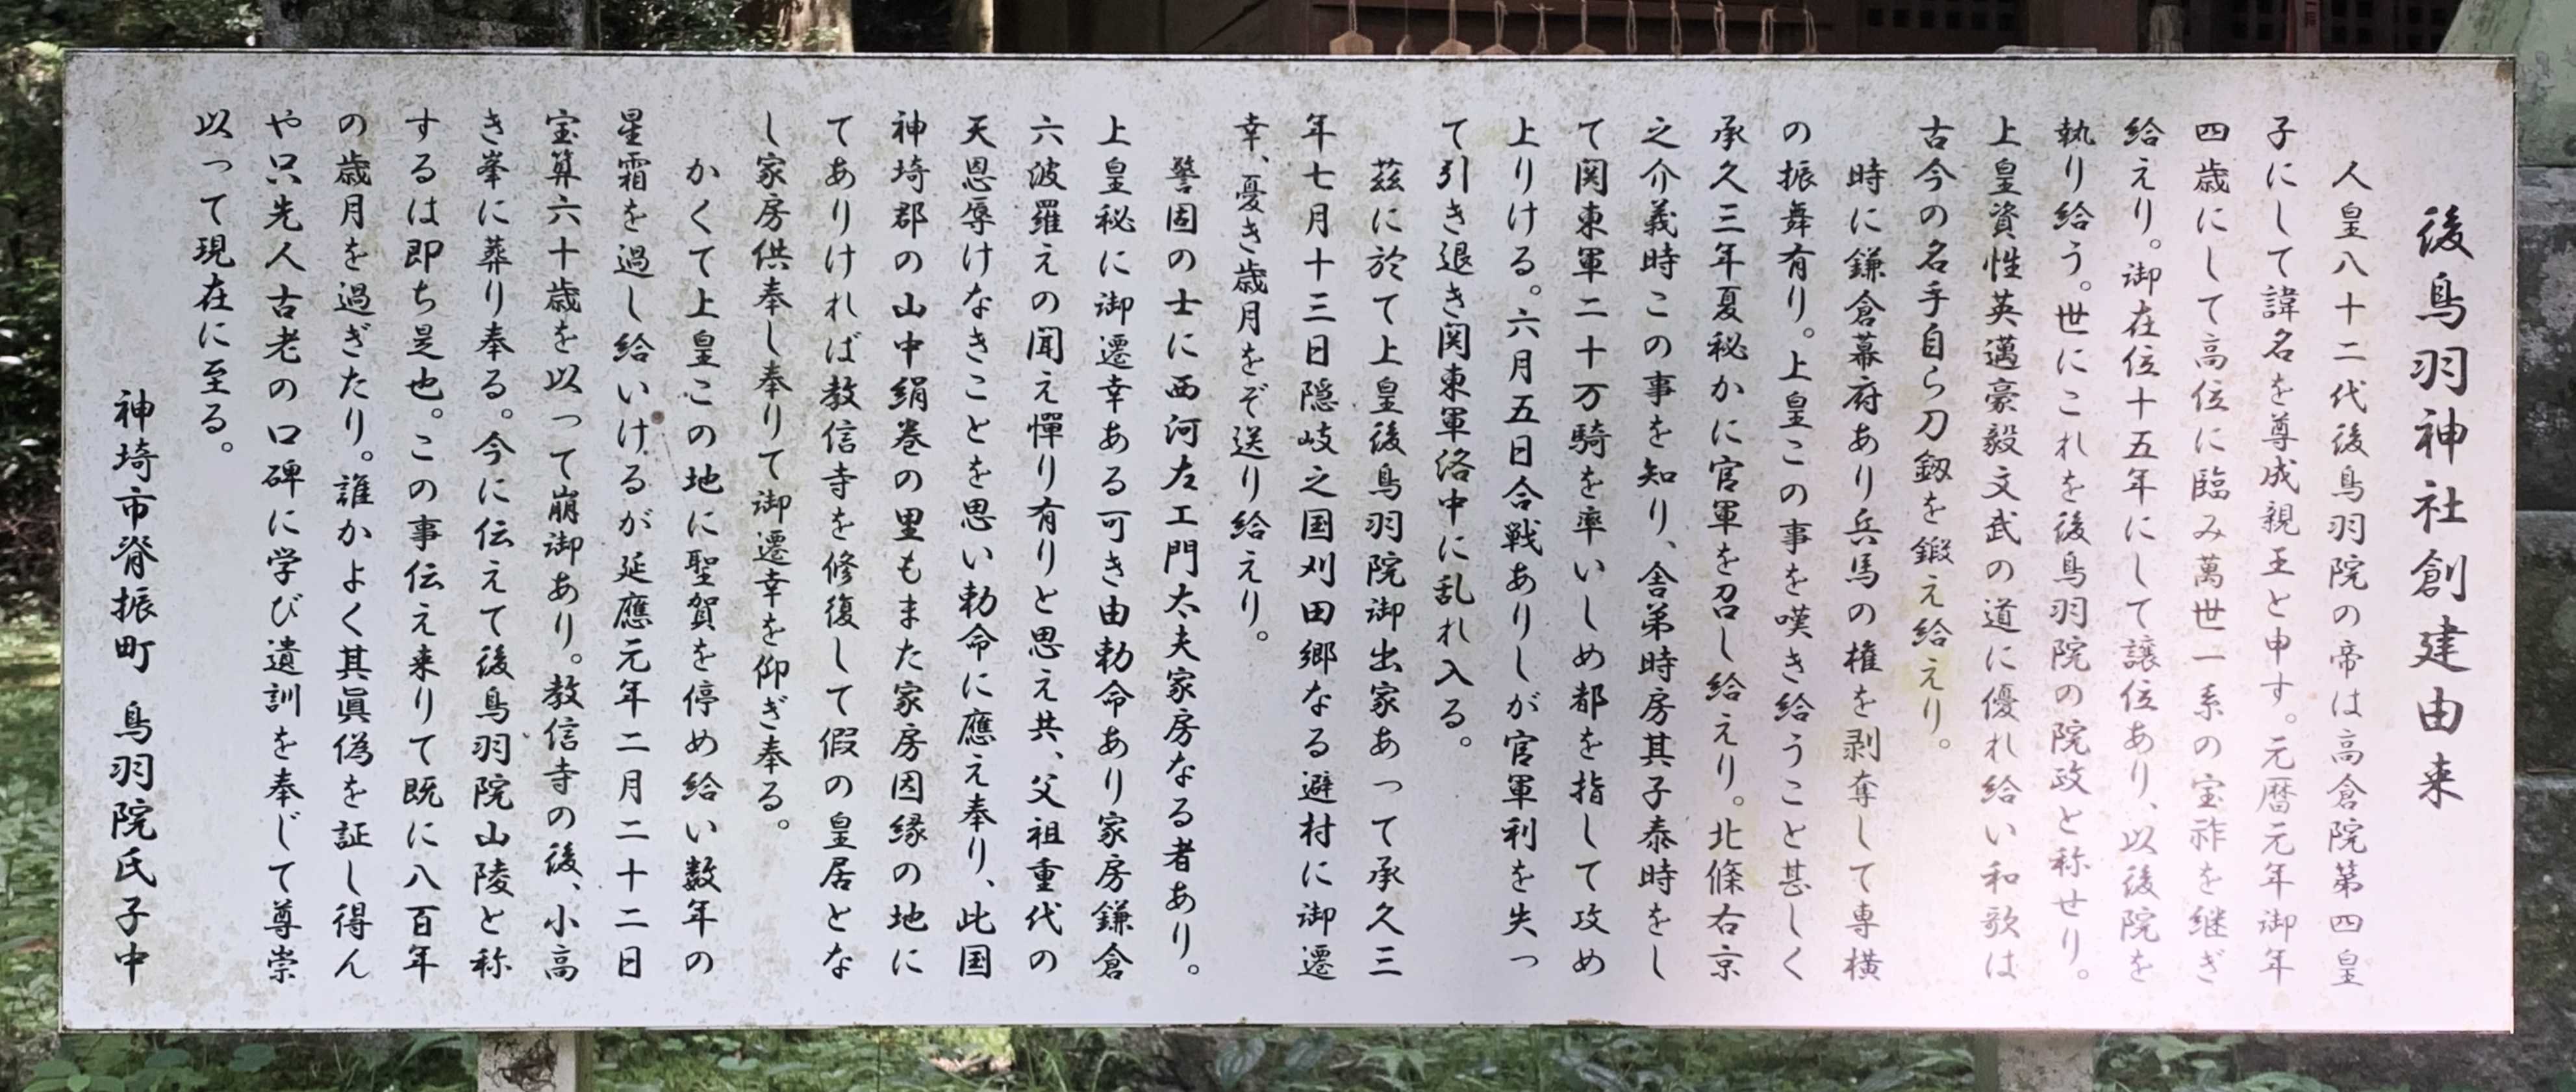 後鳥羽神社創建由来
人皇八十二代後鳥羽院の帝は高倉院第四皇
子にして諱名を尊成親王と申す。元暦元年御年
四歳にして高位に臨み萬世一系の宝祚を継ぎ
給えり。御在位十五年にして譲位あり、以後院を
執り給う。世にこれを後鳥羽院の院政と称せり。
上皇資性英邁豪毅文武の道に優れ給い和歌は
古今の名手自ら刀釼を鍛え給えり。
時に鎌倉幕府あり兵馬の権を剥奪して専横
の振舞有り。上皇この事を嘆き給うこと甚しく
承久三年夏秘かに官軍を召し給えり。北條右京
之介義時この事を知り、舎弟時房其子泰時をし
て関東軍二十万騎を率いしめ都を指して攻め
上りける。六月五日合戦ありしが官軍利を失っ
て引き退き関東軍洛中に乱れ入る。
茲に於て上皇後鳥羽院御出家あって承久三
年七月十三日隠岐之国刈田郷なる避村に御遷
幸、憂き歳月をぞ送り給えり。
警固の士に西河左エ門太夫家房なる者あり。
上皇秘に御遷幸ある可き由勅命あり家房鎌倉
六波羅えの聞え憚り有りと思え共、父祖重代の
天恩辱けなきことを思い勅命に應え奉り、此国
神埼郡の山中絹巻の里もまた家房因縁の地に
てありければ教信寺を修復して假の皇居とな
し家房供奉し奉りて御遷幸を仰ぎ奉る。
かくて上皇この地に聖賀を停め給い数年の
星霜を過し給いけるが延應元年二月二十二日
宝算六十歳を以って崩御あり。教信寺の後、小高
き峯に葬り奉る。今に伝えて後鳥羽院山陵と称
するは即ち是也。この事伝え来りて既に八百年
の歳月を過ぎたり。誰かよく其眞偽を証し得ん
や只先人古老の口碑に学び遺訓を奉じて尊崇
以って現在に至る。
神埼市脊振町 鳥羽院氏子中